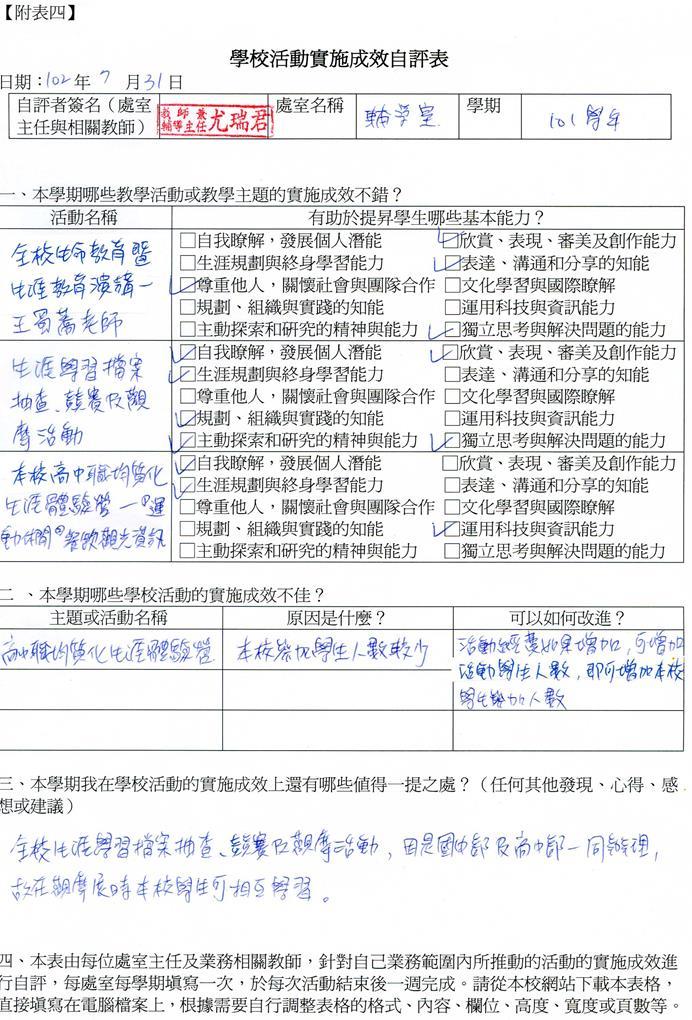 【附表四】
學校活動實施成效自評表
日期：102年 7 月31日
自評者簽名（處室主任與相關教師）
教師兼輔導主任 尤瑞君
處室名稱
輔導室
學期
101學年
一、本學期哪些教學活動或教學主題的實施成效不錯？
活動名稱 有助於提昇學生哪些基本能力？
全校生命教育暨
生涯教育演講—
王蜀蕎老師
□自我瞭解，發展個人潛能 ☑欣賞、表現、審美及創作能力
□生涯規劃與終身學習能力 ☑表達、溝通和分享的知能
☑尊重他人，關懷社會與團隊合作 □文化學習與國際瞭解
□規劃、組織與實踐的知能 □運用科技與資訊能力
□主動探索和研究的精神與能力 ☑獨立思考與解決問題的能力
生涯學習檔案
抽查、競賽及觀
摩活動
☑自我瞭解，發展個人潛能 ☑欣賞、表現、審美及創作能力
☑生涯規劃與終身學習能力 □表達、溝通和分享的知能
□尊重他人，關懷社會與團隊合作 □文化學習與國際瞭解
☑規劃、組織與實踐的知能 □運用科技與資訊能力
☑主動探索和研究的精神與能力 ☑獨立思考與解決問題的能力
本校高中職均質化
生涯體驗營—『運
動休閒』餐飲觀光資訊
☑自我瞭解，發展個人潛能 □欣賞、表現、審美及創作能力
☑生涯規劃與終身學習能力 □表達、溝通和分享的知能
□尊重他人，關懷社會與團隊合作 □文化學習與國際瞭解
□規劃、組織與實踐的知能 ☑運用科技與資訊能力
□主動探索和研究的精神與能力 □獨立思考與解決問題的能力
二 、本學期哪些學校活動的實施成效不佳？
主題或活動名稱 原因是什麼？ 可以如何改進？
高中職均質化生涯體驗營
本校參加學生人數較少
活動經費如果增加，可增加
活動學生人數，即可增加本校
學生參加人數
三、本學期我在學校活動的實施成效上還有哪些值得一提之處？（任何其他發現、心得、感
想或建議）
全校生涯學習檔案抽查、競賽及觀摩活動，因是國中部及高中部一同辦理，
故在觀摩展時本校學生可相互學習。
四、本表由每位處室主任及業務相關教師，針對自己業務範圍內所推動的活動的實施成效進
行自評，每處室每學期填寫一次，於每次活動結束後一週完成。請從本校網站下載本表格，
直接填寫在電腦檔案上，根據需要自行調整表格的格式、內容、欄位、高度、寬度或頁數等。